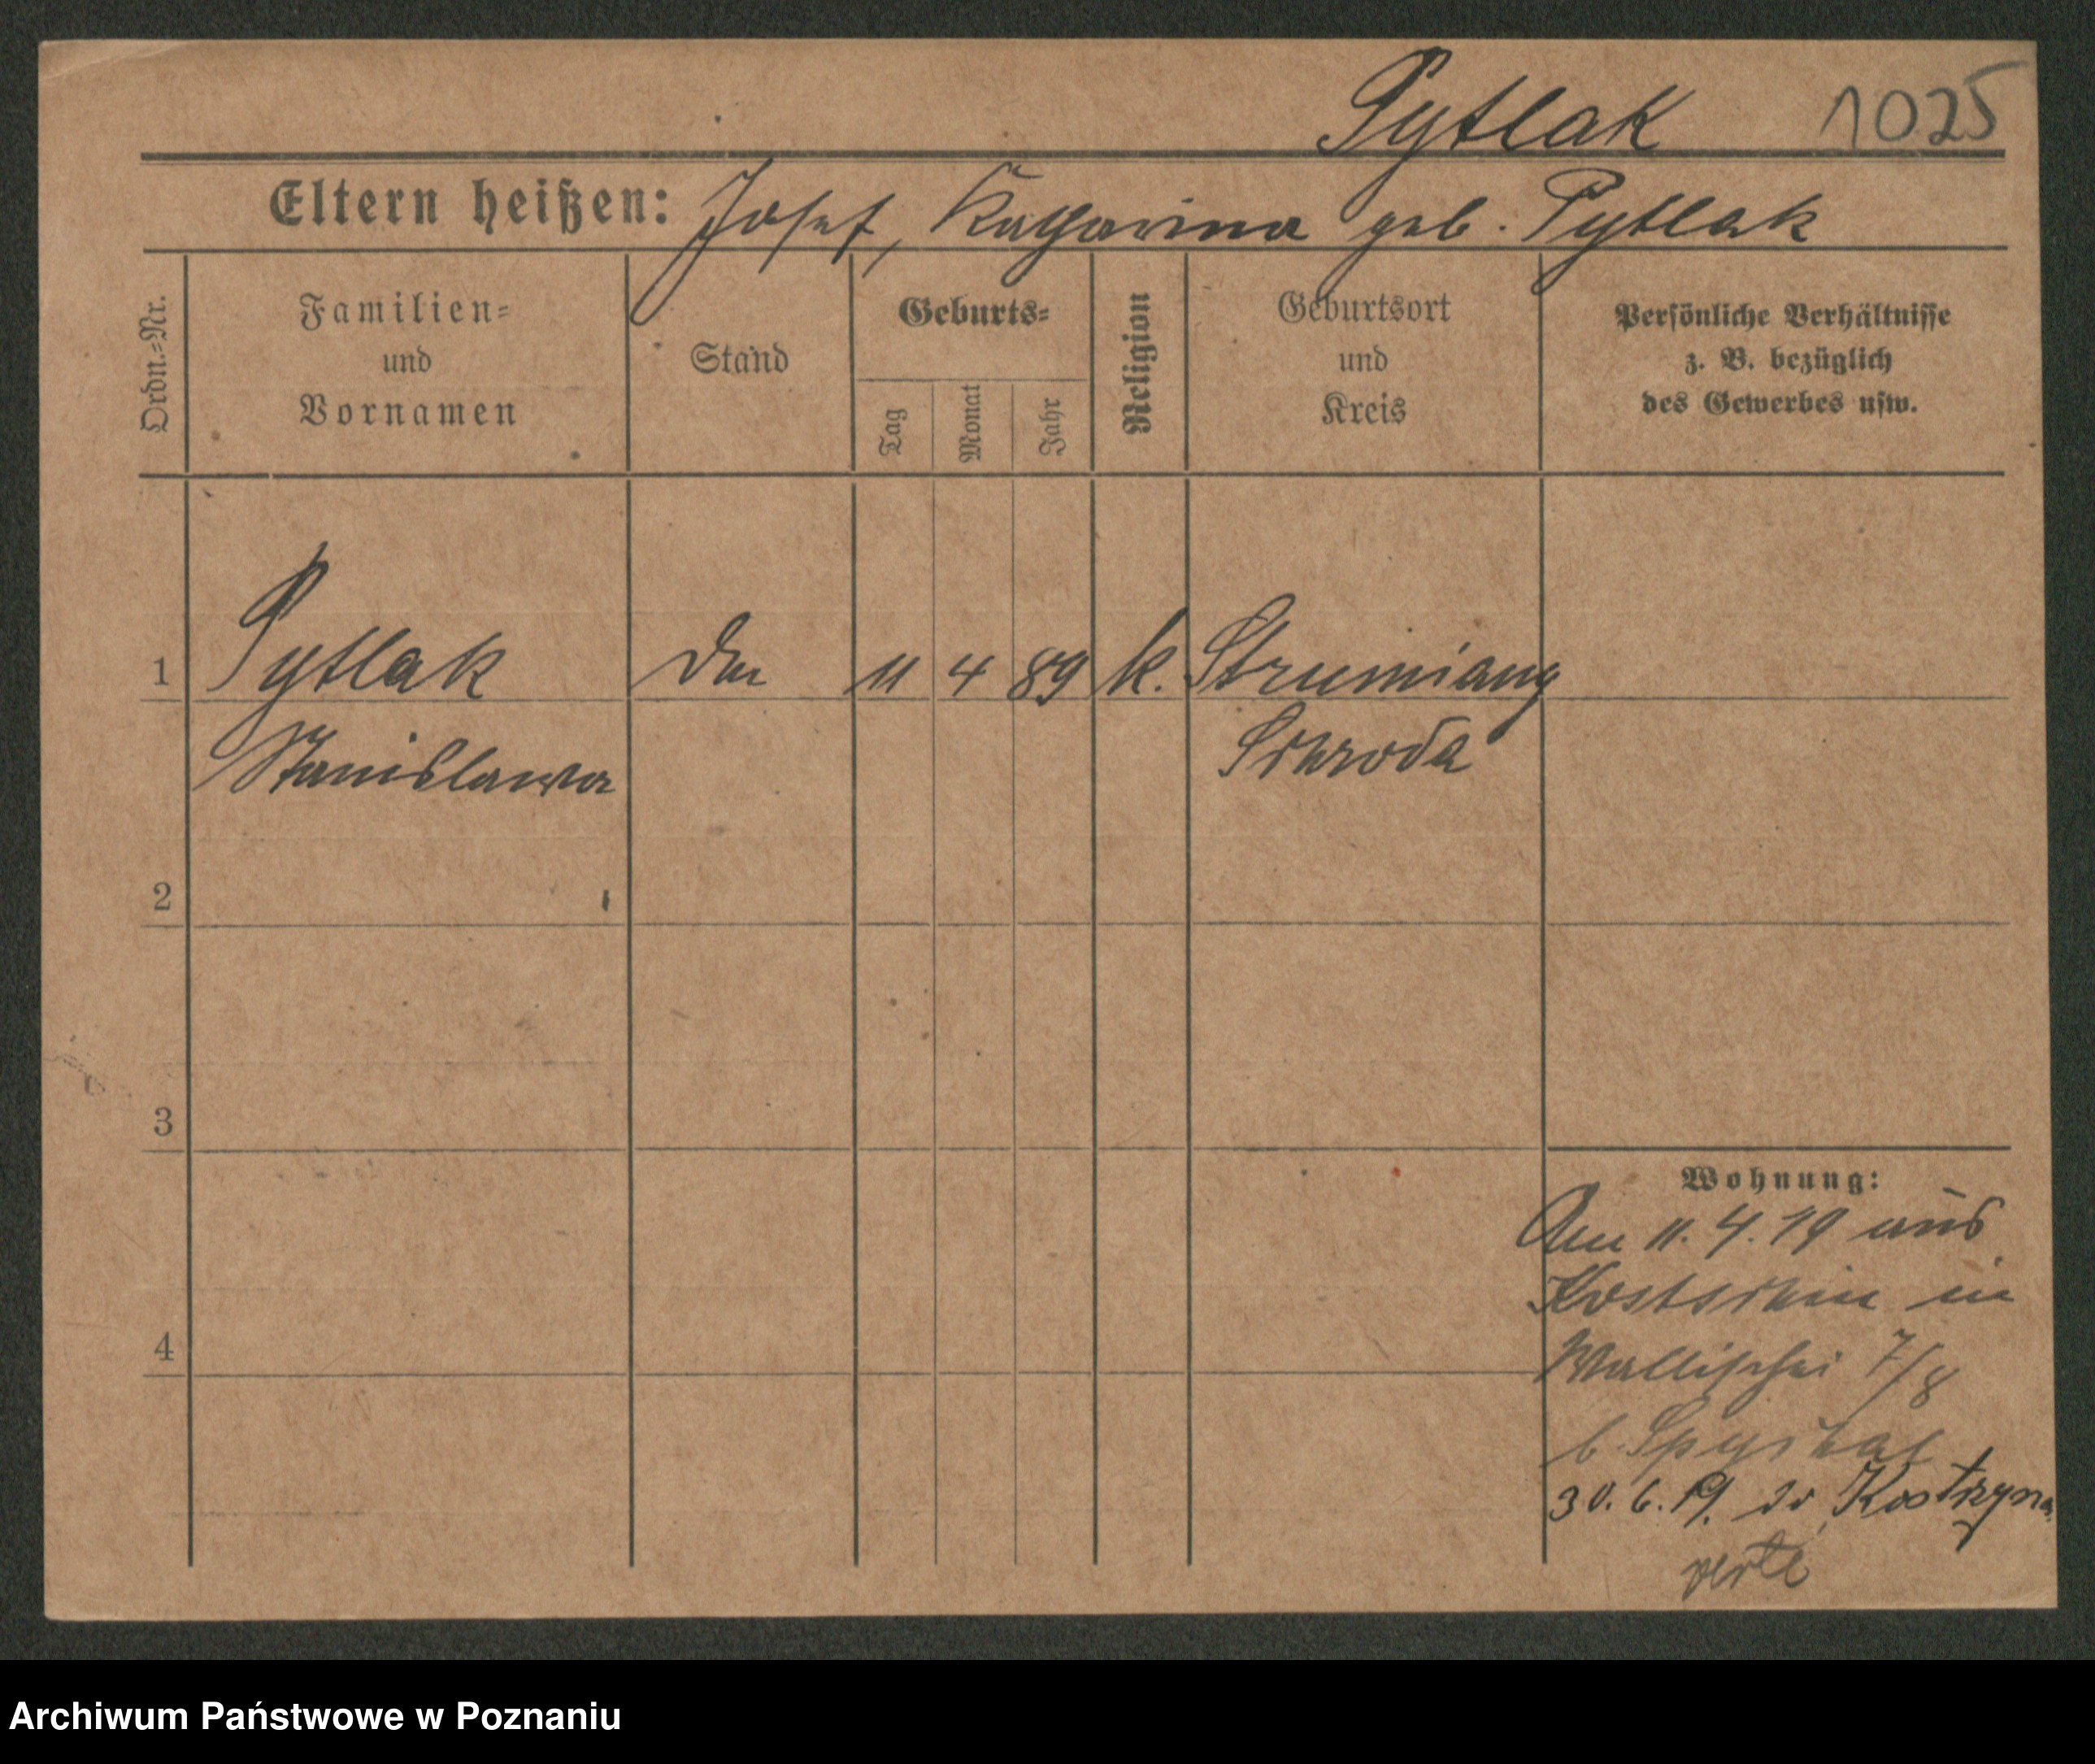 Pytlak 1025
Eltern heißen: Josef, Katharina geb. Pytlak
Ordn.-Nr.
Familien-
und
Vornamen
Stand
Geburts-
Tag
Monat
Jahr
Religion
Geburtsort
und
Kreis
Persönliche Verhältnisse
z. B. bezüglich
des Gewerbes usw.
1 Pytlak 11 4 89 k. Strumiany
Stanislawa Schroda
2
3
4
Wohnung:
Am 11.4.19 aus
Kostschin in
Wallischei 7/8
b.
30.6.19. do Kostrzyna
verte
Archiwum Państwowe w Poznaniu